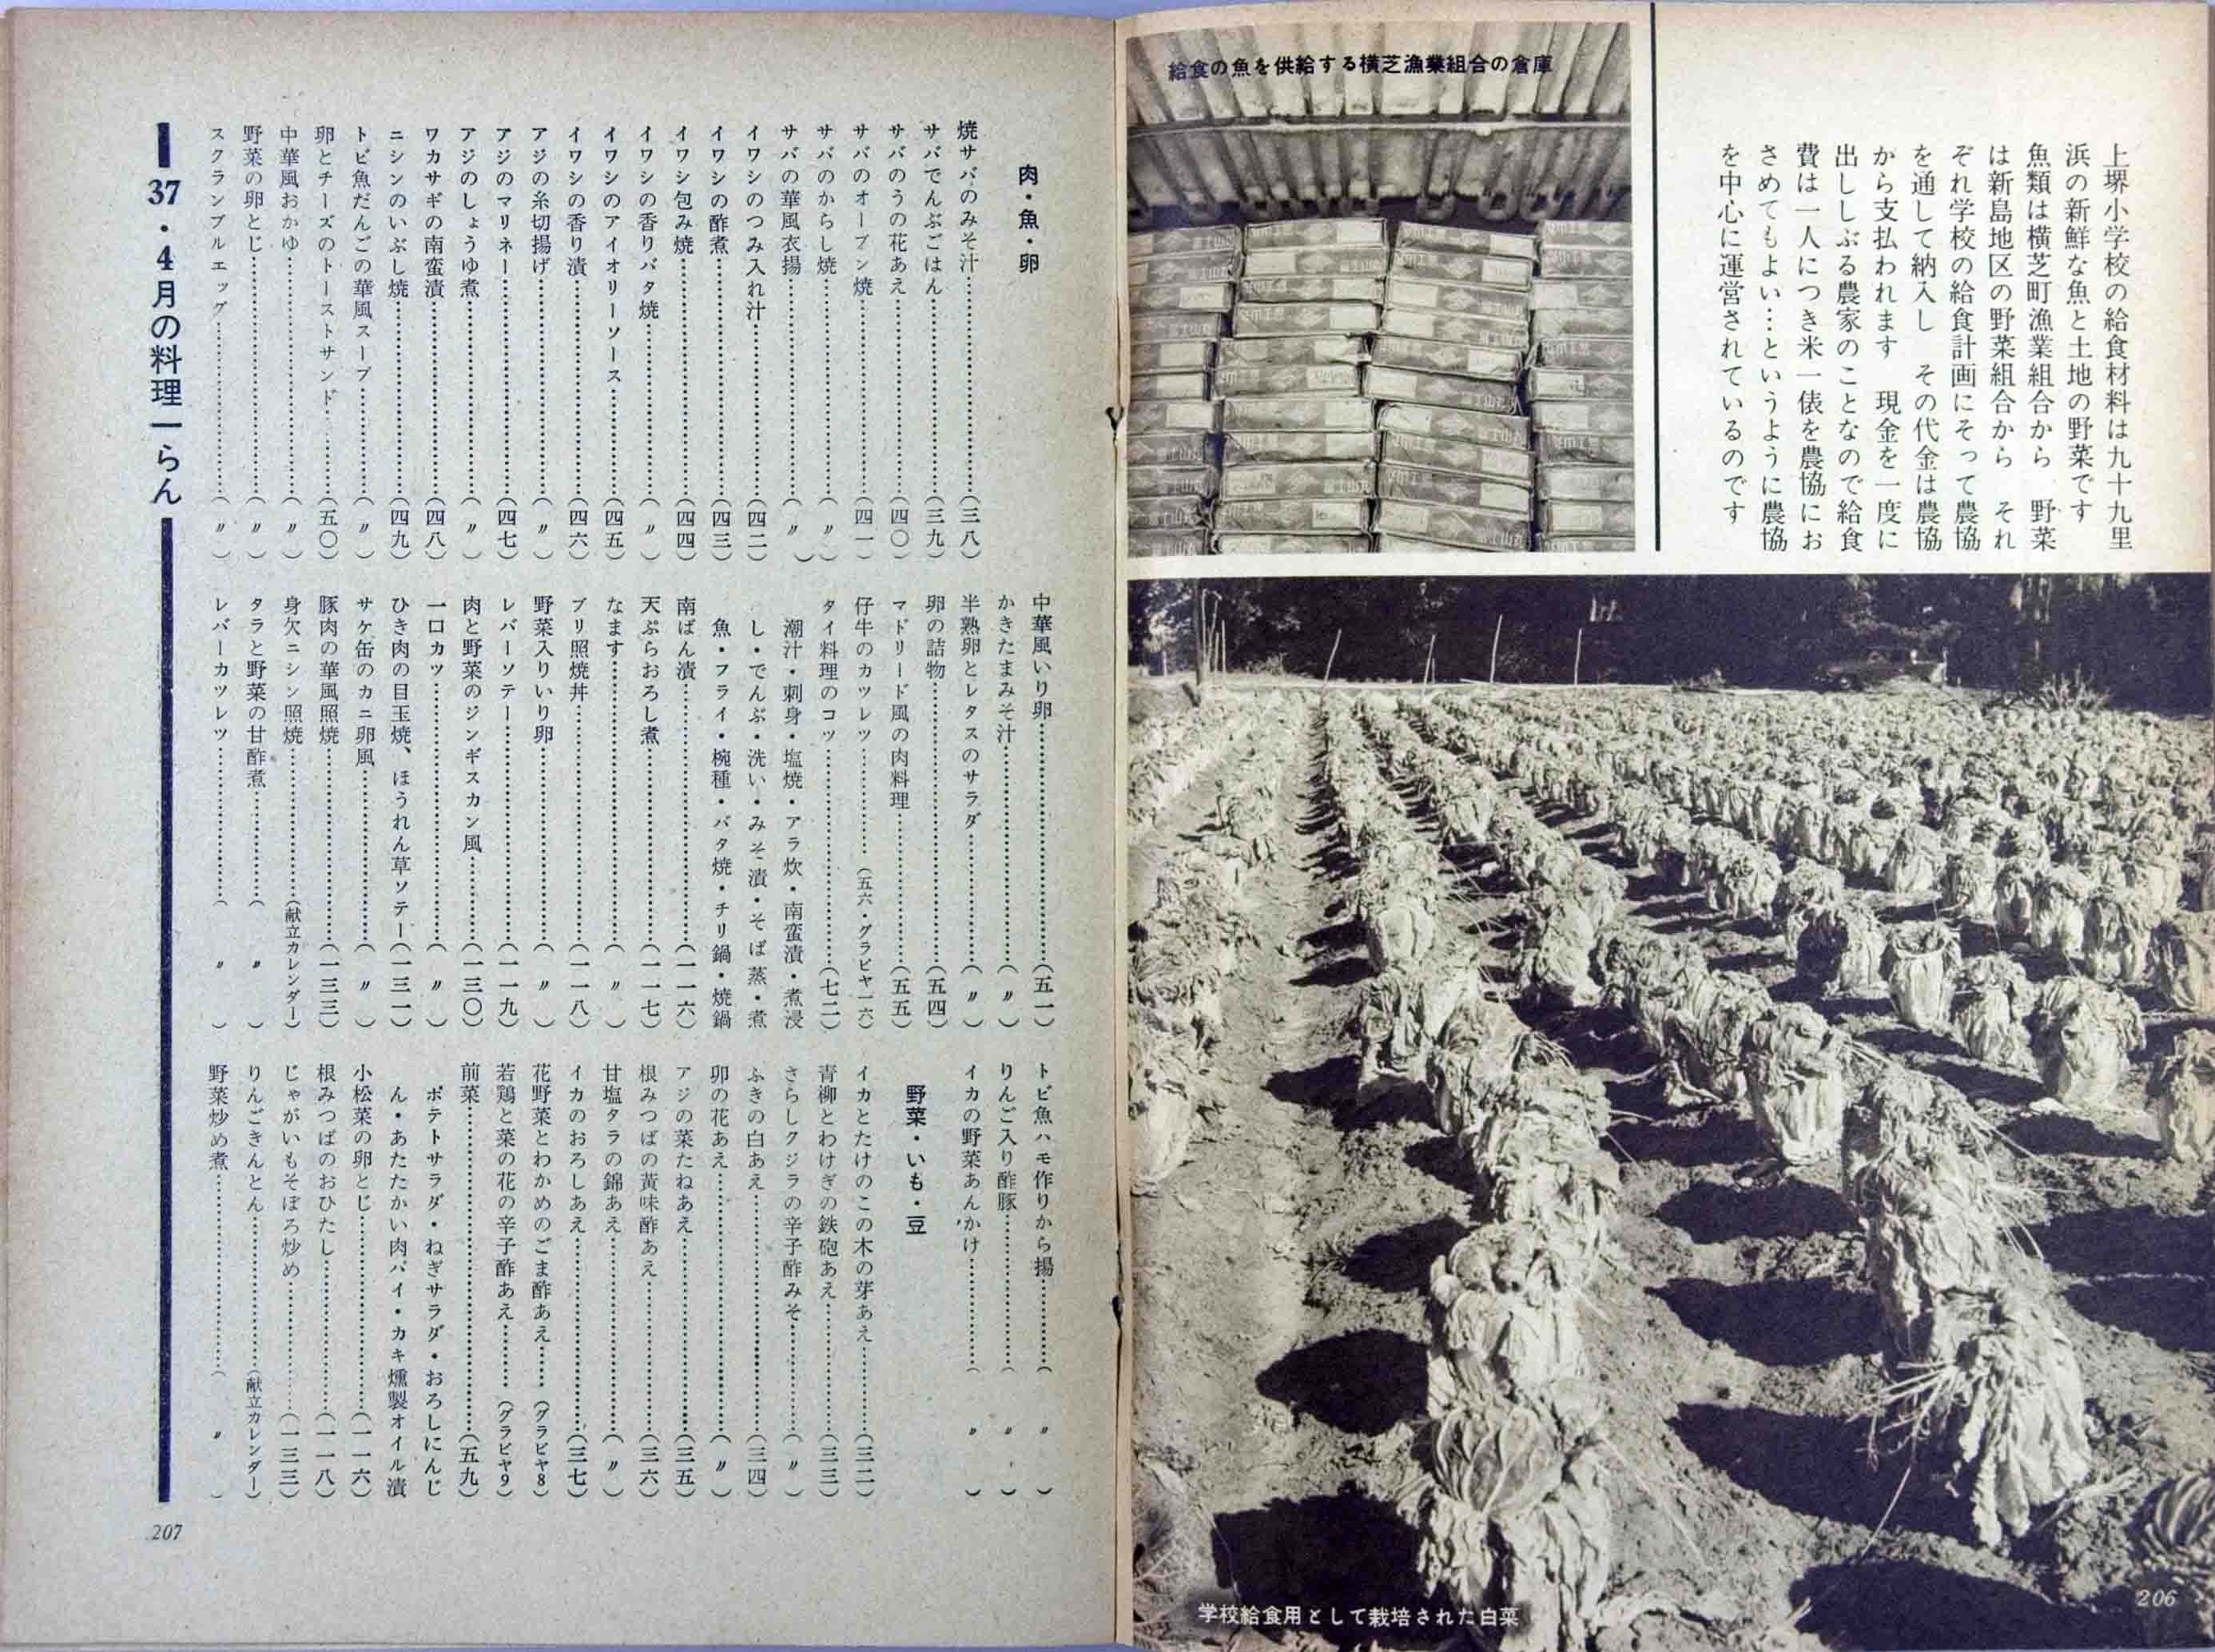 給食の魚を供給する横芝漁業組合の倉庫
上堺小学校の給食材料は九十九里
浜の新鮮な魚と土地の野菜です
魚類は横芝町漁業組合から　野菜
は新島地区の野菜組合から　それ
ぞれ学校の給食計画にそって農協
を通して納入し　その代金は農協
から支払われます　現金を一度に
出ししぶる農家のことなので給食
費は一人につき米一俵を農協にお
さめてもよい…というように農協
を中心に運営されているのです
学校給食用として栽培された白菜
206
肉・魚・卵
焼サバのみそ汁……（三八）
サバでんぶごはん……（三九）
サバのうの花あえ……（四〇）
サバのオーブン焼……（四一）
サバのからし焼……（〃）
サバの華風衣揚……（〃）
イワシのつみ入れ汁……（四二）
イワシの酢煮……（四三）
イワシ包み焼……（四四）
イワシの香りバタ焼……（〃）
イワシのアイオリーソース……（四五）
イワシの香り漬……（四六）
アジの糸切揚げ……（〃）
アジのマリネー……（四七）
アジのしょうゆ煮……（〃）
ワカサギの南蛮漬……（四八）
ニシンのいぶし焼……（四九）
トビ魚だんごの華風スープ……（〃）
卵とチーズのトーストサンド……（五〇）
中華風おかゆ……（〃）
野菜の卵とじ……（〃）
スクランブルエッグ……（〃）
中華風いり卵……（五一）
かきたまみそ汁……（〃）
半熟卵とレタスのサラダ……（〃）
卵の詰物……（五四）
マドリード風の肉料理……（五五）
仔牛のカツレツ……（五六・グラビヤ一六）
タイ料理のコツ……（七二）
潮汁・刺身・塩焼・アラ炊・南蛮漬・煮浸
し・でんぶ・洗い・みそ漬・そば蒸・煮
魚・フライ・椀種・バタ焼・チリ鍋・焼鍋
南ばん漬……（一一六）
天ぷらおろし煮……（一一七）
なます……（〃）
ブリ照焼丼……（一一八）
野菜入りいり卵……（〃）
レバーソテー……（一一九）
肉と野菜のジンギスカン風……（一三〇）
一口カツ……（〃）
ひき肉の目玉焼、ほうれん草ソテー（一三一）
サケ缶のカニ卵風……（〃）
豚肉の華風照焼……（一三三）
身欠ニシン照焼……（献立カレンダー）
タラと野菜の甘酢煮……（〃）
レバーカツレツ……（〃）
トビ魚ハモ作りから揚……（〃）
りんご入り酢豚……（〃）
イカの野菜あんかけ……（〃）
野菜・いも・豆
イカとたけのこの木の芽あえ……（三二）
青柳とわけぎの鉄砲あえ……（三三）
さらしクジラの辛子酢みそ……（〃）
ふきの白あえ……（三四）
卯の花あえ……（〃）
アジの菜たねあえ……（三五）
根みつばの黄味酢あえ……（三六）
甘塩タラの錦あえ……（〃）
イカのおろしあえ……（三七）
花野菜とわかめのごま酢あえ……（グラビヤ8）
若鶏と菜の花の辛子酢あえ……（グラビヤ9）
前菜……（五九）
ポテトサラダ・ねぎサラダ・おろしにんじ
ん・あたたかい肉パイ・カキ燻製オイル漬
小松菜の卵とじ……（一一六）
根みつばのおひたし……（一一八）
じゃがいもそぼろ炒め……（一三三）
りんごきんとん……（献立カレンダー）
野菜炒め煮……（〃）
37・4月の料理一らん
207